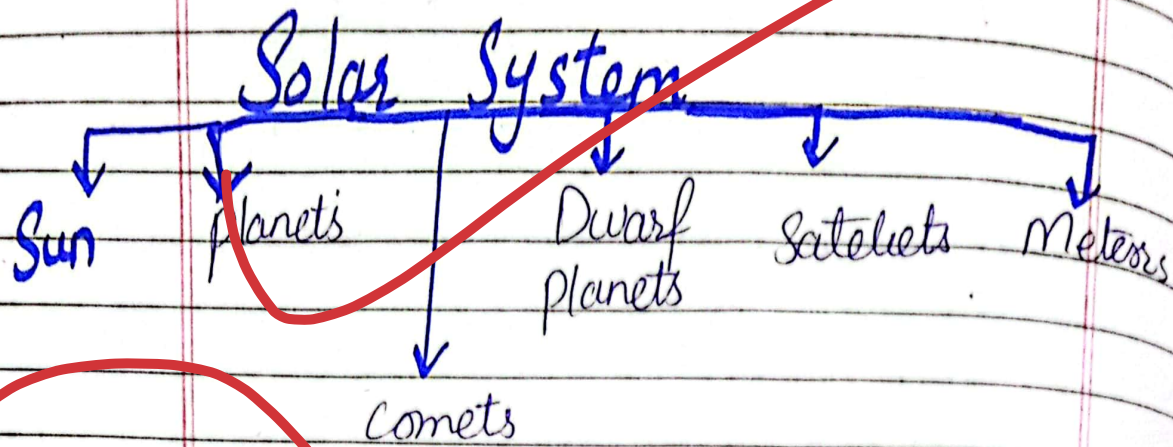 Solar System
Sun
planets
Dwarf
planets
Sateliets
Meteors
Comets